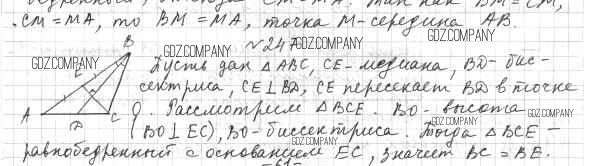 CM = MA, то BM = MA, точка M-середина AB.
GDZ.COMPANY
GDZ.COMPANY
№247
GDZ.COMPANY
B
GDZ.COMPANY
Пусть дан △ABC, CE-медиана, BD-бис-
E
сектриса, CE⊥BD, CE пересекает BD в точке
GDZ.COMPANY
O. Рассмотрим △BCE. BO-высота
A
C
D
GDZ.COMPANY
(BO⊥EC), BO-биссектриса. Тогда △BCE -
GDZ.COMPANY
GDZ.COMPANY
равнобедренный с основанием EC, значит BC = BE.